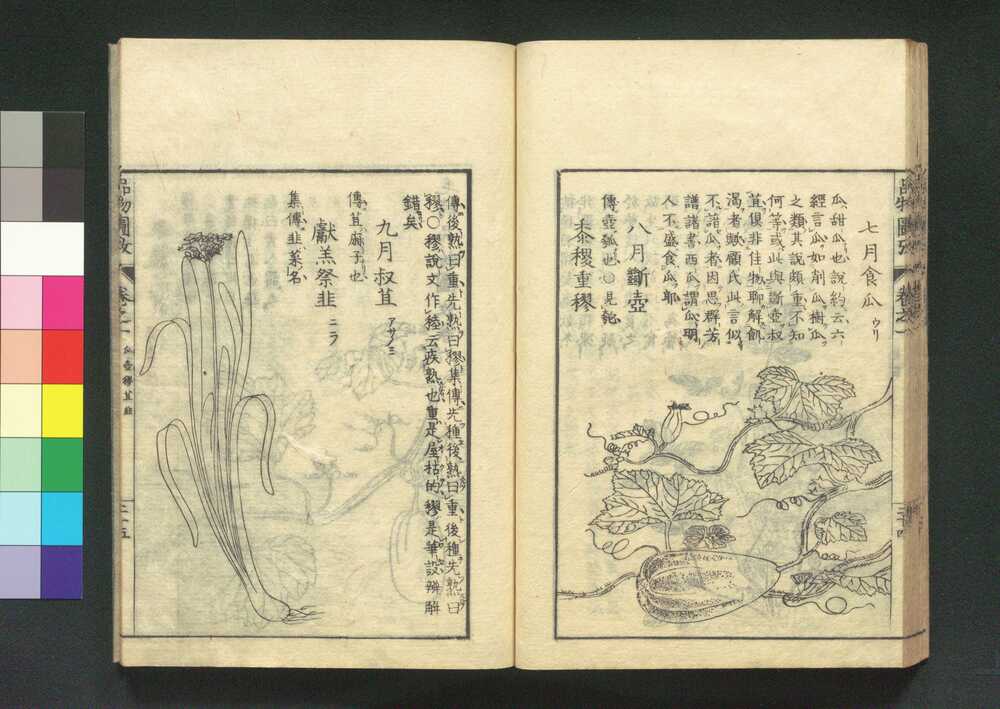 七月食瓜 ウリ
瓜甜瓜也說約云六
經言瓜如削瓜樹瓜
之類其說頗重不知
何等或此與斷壺叔
苴俱非佳物聊解飢
渴者歟顧氏此言似
不諳瓜者因思群芳
譜諸書西瓜謂瓜明
人不盛食瓜耶
八月斷壺
傳壺瓠也○見匏
黍稷重穋
傳後熟曰重先熟曰穋集傳先種後熟曰重後種先熟曰
穋○穋說文作稑云疾熟也重是
的穋是華說辨解
錯矣
九月叔苴 アサノミ
傳苴麻子也
獻羔祭韭 ニラ
集傳韭菜名
品物圖攷
卷之一
瓜壺穋苴韭
二十五